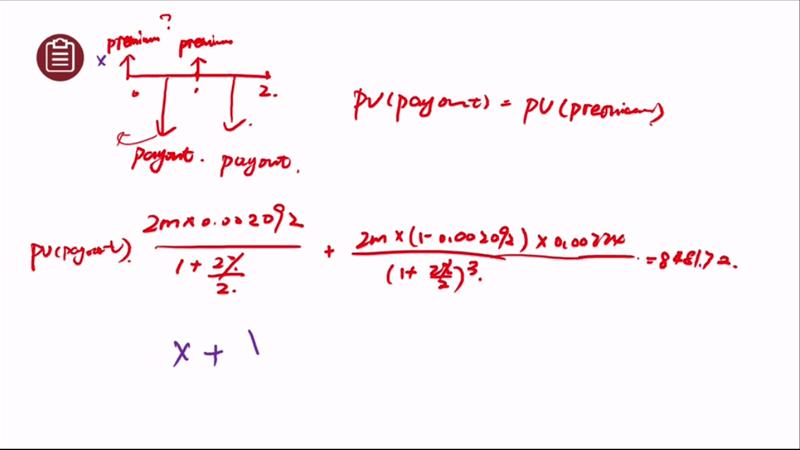 premium? premium
x
0 1 2.
payout. payout.
PV(payout) = PV(premium)
PV(payout). 2m×0.002092 / 1+2%/2. + 2m×(1-0.002092)×0.002240 / (1+2%/2)^3. = 8481.72.
x + 1